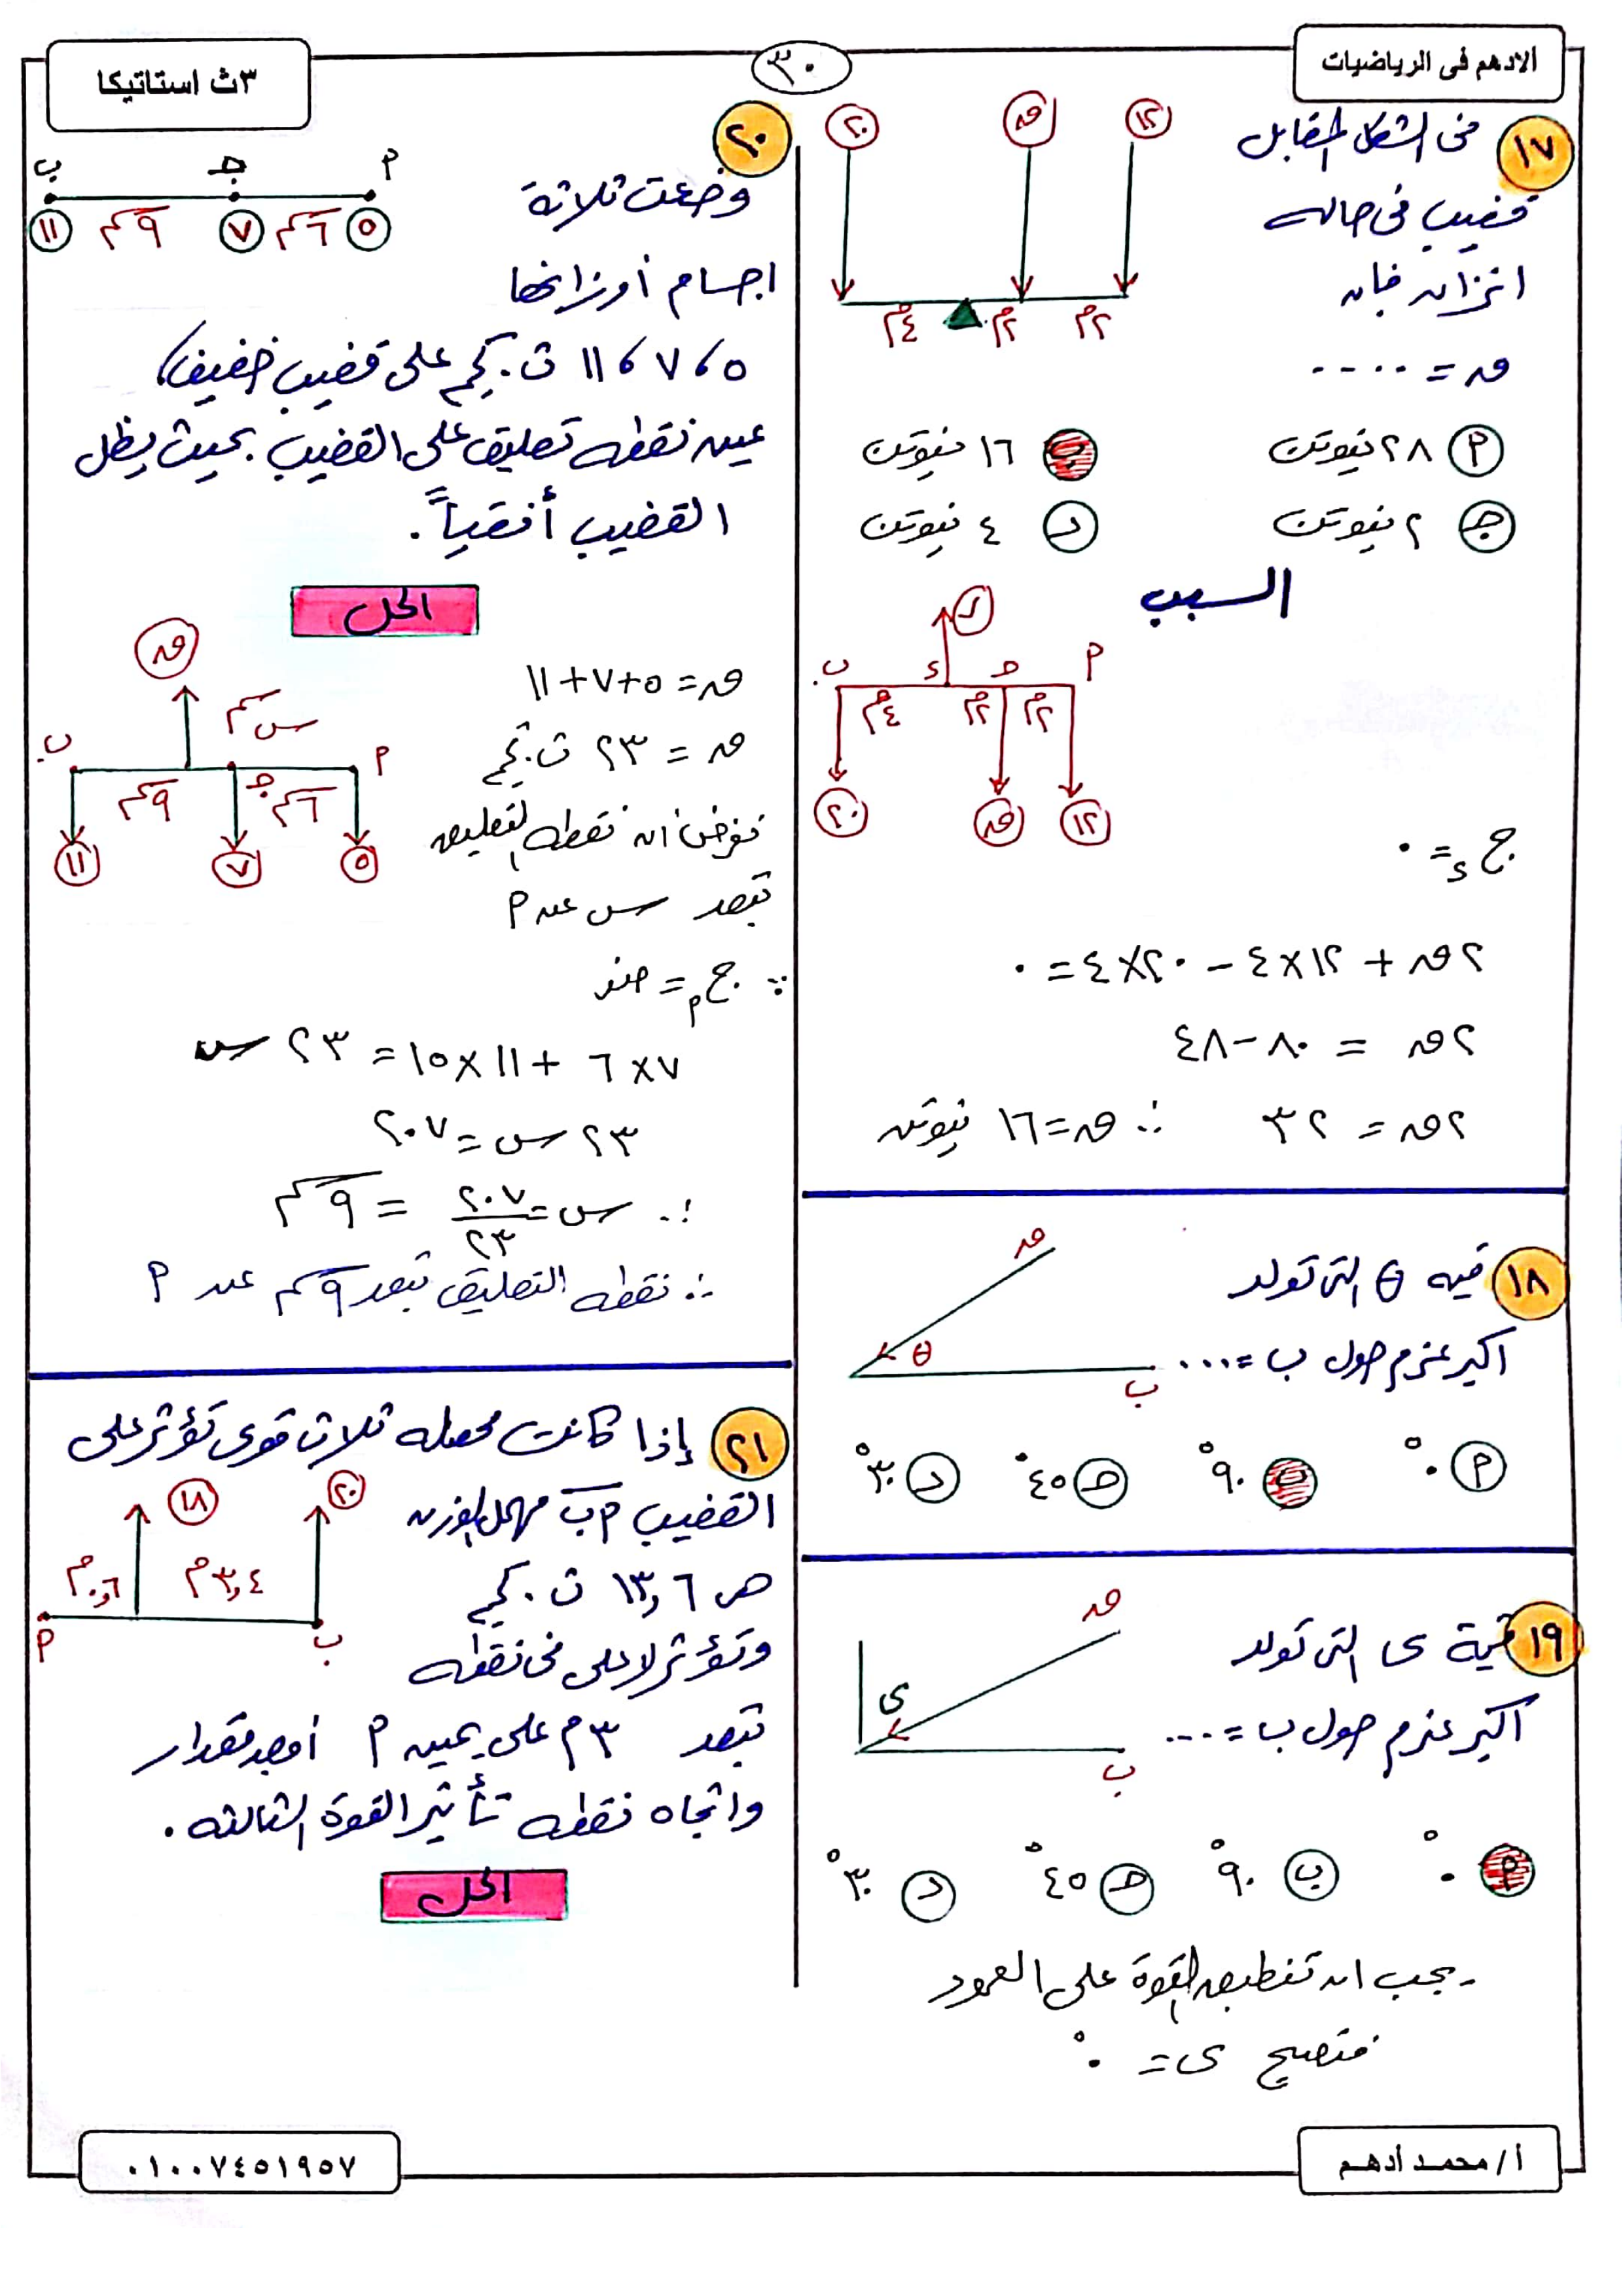 الادهم فى الرياضيات
٣٠
٣ث استاتيكا
١٧
فى الشكل المقابل
قضيب فى حاله
اتزان فإن
ق = ....
٢٠
ق
١٢
٤م
٢م
٢م
أ ٢٨ نيوتن
ب ١٦ نيوتن
ج ٢ نيوتن
د ٤ نيوتن
السبب
ر
ب
ء
ج
أ
٤م
٢م
٢م
٢٠
ق
١٢
ج ء = ٠
٢ق + ١٢×٤ - ٢٠×٤ = ٠
٢ق = ٨٠ - ٤٨
٢ق = ٣٢ ∴ ق = ١٦ نيوتن
١٨
قيمه θ التى تولد
اكبر عزم حول ب = ....
ق
θ
ب
أ ٠°
ب ٩٠°
ج ٤٥°
د ٣٠°
١٩
قيمة ى التى تولد
اكبر عزم حول ب = ....
ق
ى
ب
أ ٠°
ب ٩٠°
ج ٤٥°
د ٣٠°
يجب ان تنطبق القوة على العمود
فتصبح ى = ٠°
٢٠
وضعت ثلاثة
اجسام أوزانها
٥ ، ٧ ، ١١ ث.كجم على قضيب خفيف
عين نقطه تعليق على القضيب بحيث يظل
القضيب أفقياً.
ب
ج
أ
١١
٩سم
٧
٦سم
٥
الحل
ق
س سم
ب
أ
٩سم
ج
٦سم
١١
٧
٥
ق = ٥+٧+١١
ق = ٢٣ ث.كجم
نفرض ان نقطه التعليق
تبعد س عن أ
∵ ج أ = صفر
٧×٦ + ١١×١٥ = ٢٣ س
٢٣ س = ٢٠٧
∴ س = ٢٠٧/٢٣ = ٩سم
∴ نقطه التعليق تبعد ٩سم عن أ
٢١
إذا كانت محصله ثلاث قوى تؤثر على
القضيب أب مهمل الوزن
هى ١٣,٦ ث.كجم
وتؤثر لاعلى فى نقطه
تبعد ٣م على يمين أ أوجد مقدار
واتجاه نقطه تأثير القوة الثالثه.
١٨
٢٠
٠,٦م
٣,٤م
أ
ب
الحل
أ/ محمد أدهم
٠١٠٠٧٤٥١٩٥٧